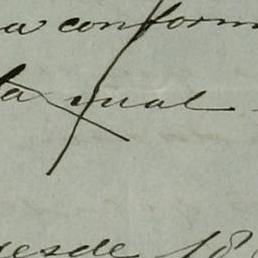 a conform
ta qual
desde 18